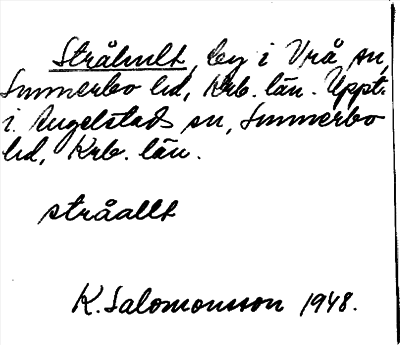 Stråhult, by i Vrå sn,
Sunnerbo hd, Krb. län. Uppt.
i Angelstads sn, Sunnerbo
hd, Krb. län.
stråallt
K. Salomonsson 1948.